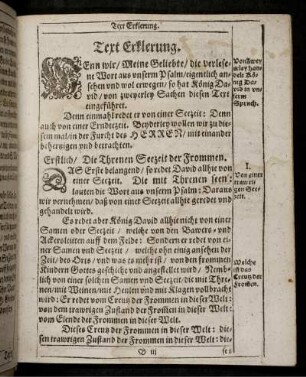 Text Erklerung.
Text Erklerung.
WEnn wir/ Meine Geliebte/ die verlese-
ne Wort aus unserm Psalm/ eigentlich an-
sehen und wol erwegen/ so hat König Da-
vid/ von zweyerley Sachen diesen Text
eingeführet.
Denn einmahl redet er von einer Seezeit: Denn
auch von einer Erndtezeit. Beyderley wollen wir zu die-
sem mal/ in der Furcht des HERREN/ mit einander
behertzigen und betrachten.
Erstlich/ Die Threnen Seezeit der Frommen.
DAS Erste belangend/ so redet David allhie von
einer Seezeit. Die mit Threnen seen/
lauten die Wort aus unserm Psalm: Daraus
wir vernehmen/ daß von einer Seezeit allhie geredet und
gehandelt wird.
Es redet aber König David allhie nicht von einer
Samen oder Seezeit/ welche von den Bawers- und
Ackersleuten auff dem Felde: Sondern er redet von ei-
ner Samen und Seezeit/ welche ohn einig ansehen der
Zeit/ des Orts/ und was es mehr ist/ von den frommen
Kindern Gottes geschicht und angestellet wird/ Nemb-
lich von einer solchen Samen und Seezeit/ die mit Thre-
nen/ mit Weinen/ mit Heulen und mit Klagen vollbracht
wird: Er redet vom Creutz der Frommen in dieser Welt:
von dem trawrigen Zustand der Frommen in dieser Welt:
vom Elende der Frommen in dieser Welt.
Dieses Creutz der Frommen in dieser Welt: die-
sen trawrigen Zustand der Frommen in dieser Welt: die-
B iij
ses
Von zwey-
erley hand-
vid in un-
serm
Spruch.
I.
Von einer
See-
zeit.
Welche
ist das
Creutz der